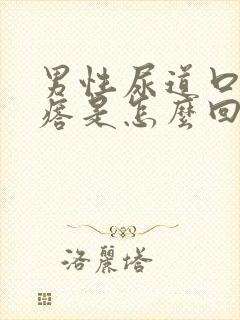 男性尿道口
痞是怎麼回
洛麗塔